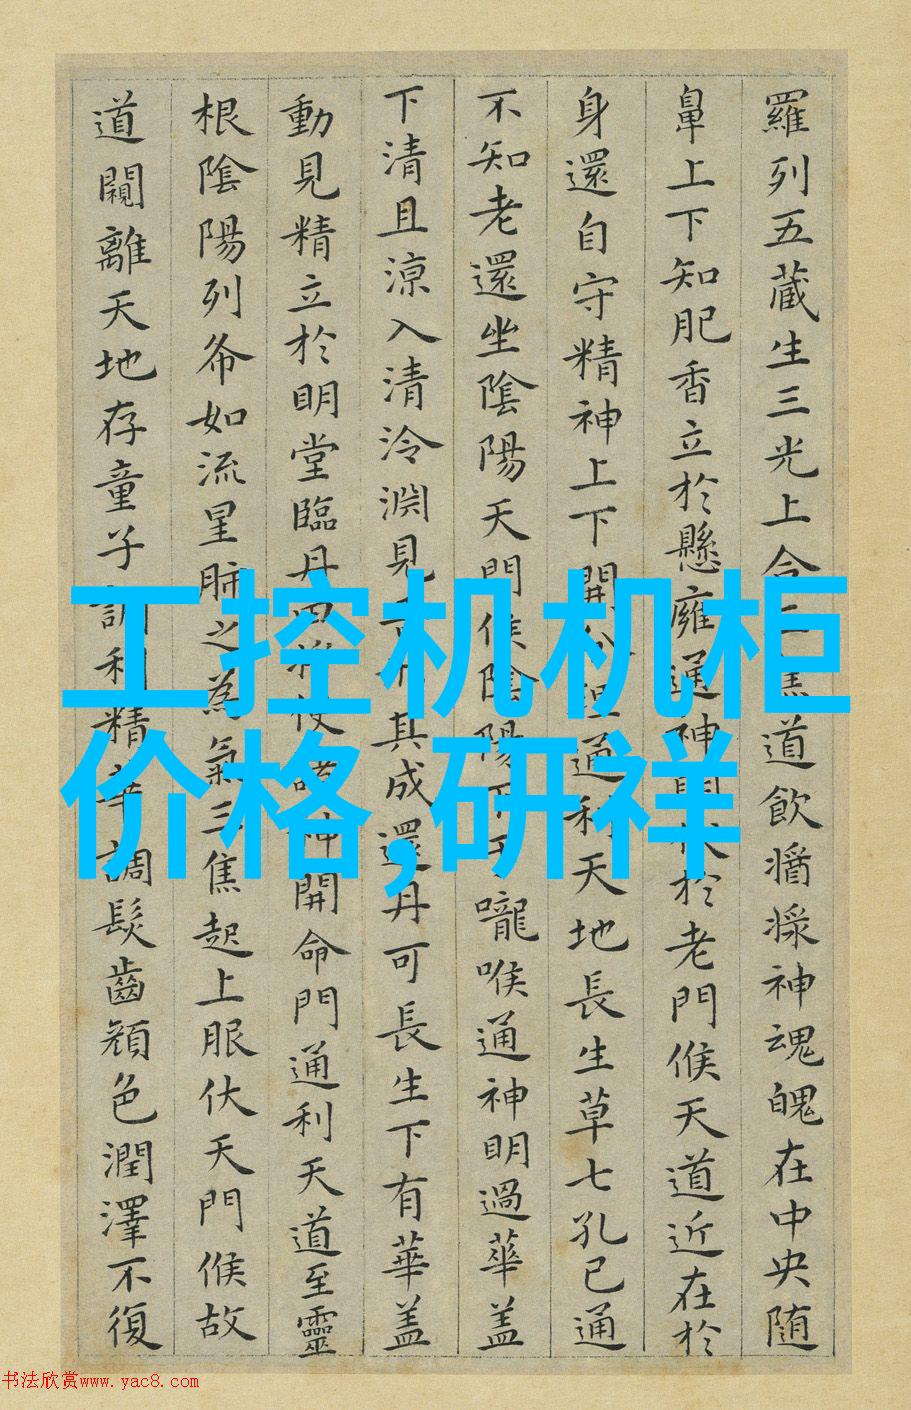 羅列五蔵生三光上合三焦道飲醬漿神魂魄在中央随
鼻上下知肥香立於懸癰通神明伏於老門候天道近在於
身還自守精神上下開分理通利天地長生草七孔已通
不知老還坐陰陽天門候陰陽下于嚨喉通神明過華盖
下清且涼入清泠淵見吾形其成還丹可長生下有華盖
動見精立於明堂臨丹田将使諸神開命門通利天道至靈
根陰陽列布如流星肺之為氣三焦起上服伏天門候故
道闚離天地存童子調利精華調髮齒顔色潤澤不復
工控机机柜
价格,研祥
书法欣赏www.yac8.com